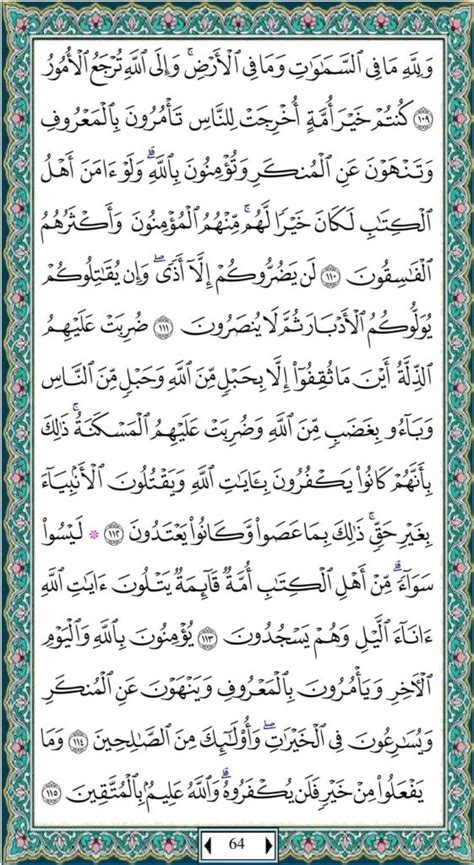 وَلِلَّهِ مَا فِي ٱلسَّمَٰوَٰتِ وَمَا فِي ٱلۡأَرۡضِۚ وَإِلَى ٱللَّهِ تُرۡجَعُ ٱلۡأُمُورُ
١٠٩ كُنتُمۡ خَيۡرَ أُمَّةٍ أُخۡرِجَتۡ لِلنَّاسِ تَأۡمُرُونَ بِٱلۡمَعۡرُوفِ
وَتَنۡهَوۡنَ عَنِ ٱلۡمُنكَرِ وَتُؤۡمِنُونَ بِٱللَّهِۗ وَلَوۡ ءَامَنَ أَهۡلُ
ٱلۡكِتَٰبِ لَكَانَ خَيۡرٗا لَّهُمۚ مِّنۡهُمُ ٱلۡمُؤۡمِنُونَ وَأَكۡثَرُهُمُ
ٱلۡفَٰسِقُونَ ١١٠ لَن يَضُرُّوكُمۡ إِلَّآ أَذٗىۖ وَإِن يُقَٰتِلُوكُمۡ
يُوَلُّوكُمُ ٱلۡأَدۡبَارَ ثُمَّ لَا يُنصَرُونَ ١١١ ضُرِبَتۡ عَلَيۡهِمُ
ٱلذِّلَّةُ أَيۡنَ مَا ثُقِفُوٓاْ إِلَّا بِحَبۡلٖ مِّنَ ٱللَّهِ وَحَبۡلٖ مِّنَ ٱلنَّاسِ
وَبَآءُو بِغَضَبٖ مِّنَ ٱللَّهِ وَضُرِبَتۡ عَلَيۡهِمُ ٱلۡمَسۡكَنَةُۚ ذَٰلِكَ
بِأَنَّهُمۡ كَانُواْ يَكۡفُرُونَ بِـَٔايَٰتِ ٱللَّهِ وَيَقۡتُلُونَ ٱلۡأَنۢبِيَآءَ
بِغَيۡرِ حَقّٖۚ ذَٰلِكَ بِمَا عَصَواْ وَّكَانُواْ يَعۡتَدُونَ ١١٢ ۞ لَيۡسُواْ
سَوَآءٗۗ مِّنۡ أَهۡلِ ٱلۡكِتَٰبِ أُمَّةٞ قَآئِمَةٞ يَتۡلُونَ ءَايَٰتِ ٱللَّهِ
ءَانَآءَ ٱلَّيۡلِ وَهُمۡ يَسۡجُدُونَ ١١٣ يُؤۡمِنُونَ بِٱللَّهِ وَٱلۡيَوۡمِ
ٱلۡأٓخِرِ وَيَأۡمُرُونَ بِٱلۡمَعۡرُوفِ وَيَنۡهَوۡنَ عَنِ ٱلۡمُنكَرِ
وَيُسَٰرِعُونَ فِي ٱلۡخَيۡرَٰتِۖ وَأُوْلَٰٓئِكَ مِنَ ٱلصَّٰلِحِينَ ١١٤ وَمَا
يَفۡعَلُواْ مِنۡ خَيۡرٖ فَلَن يُكۡفَرُوهُۗ وَٱللَّهُ عَلِيمُۢ بِٱلۡمُتَّقِينَ ١١٥
64